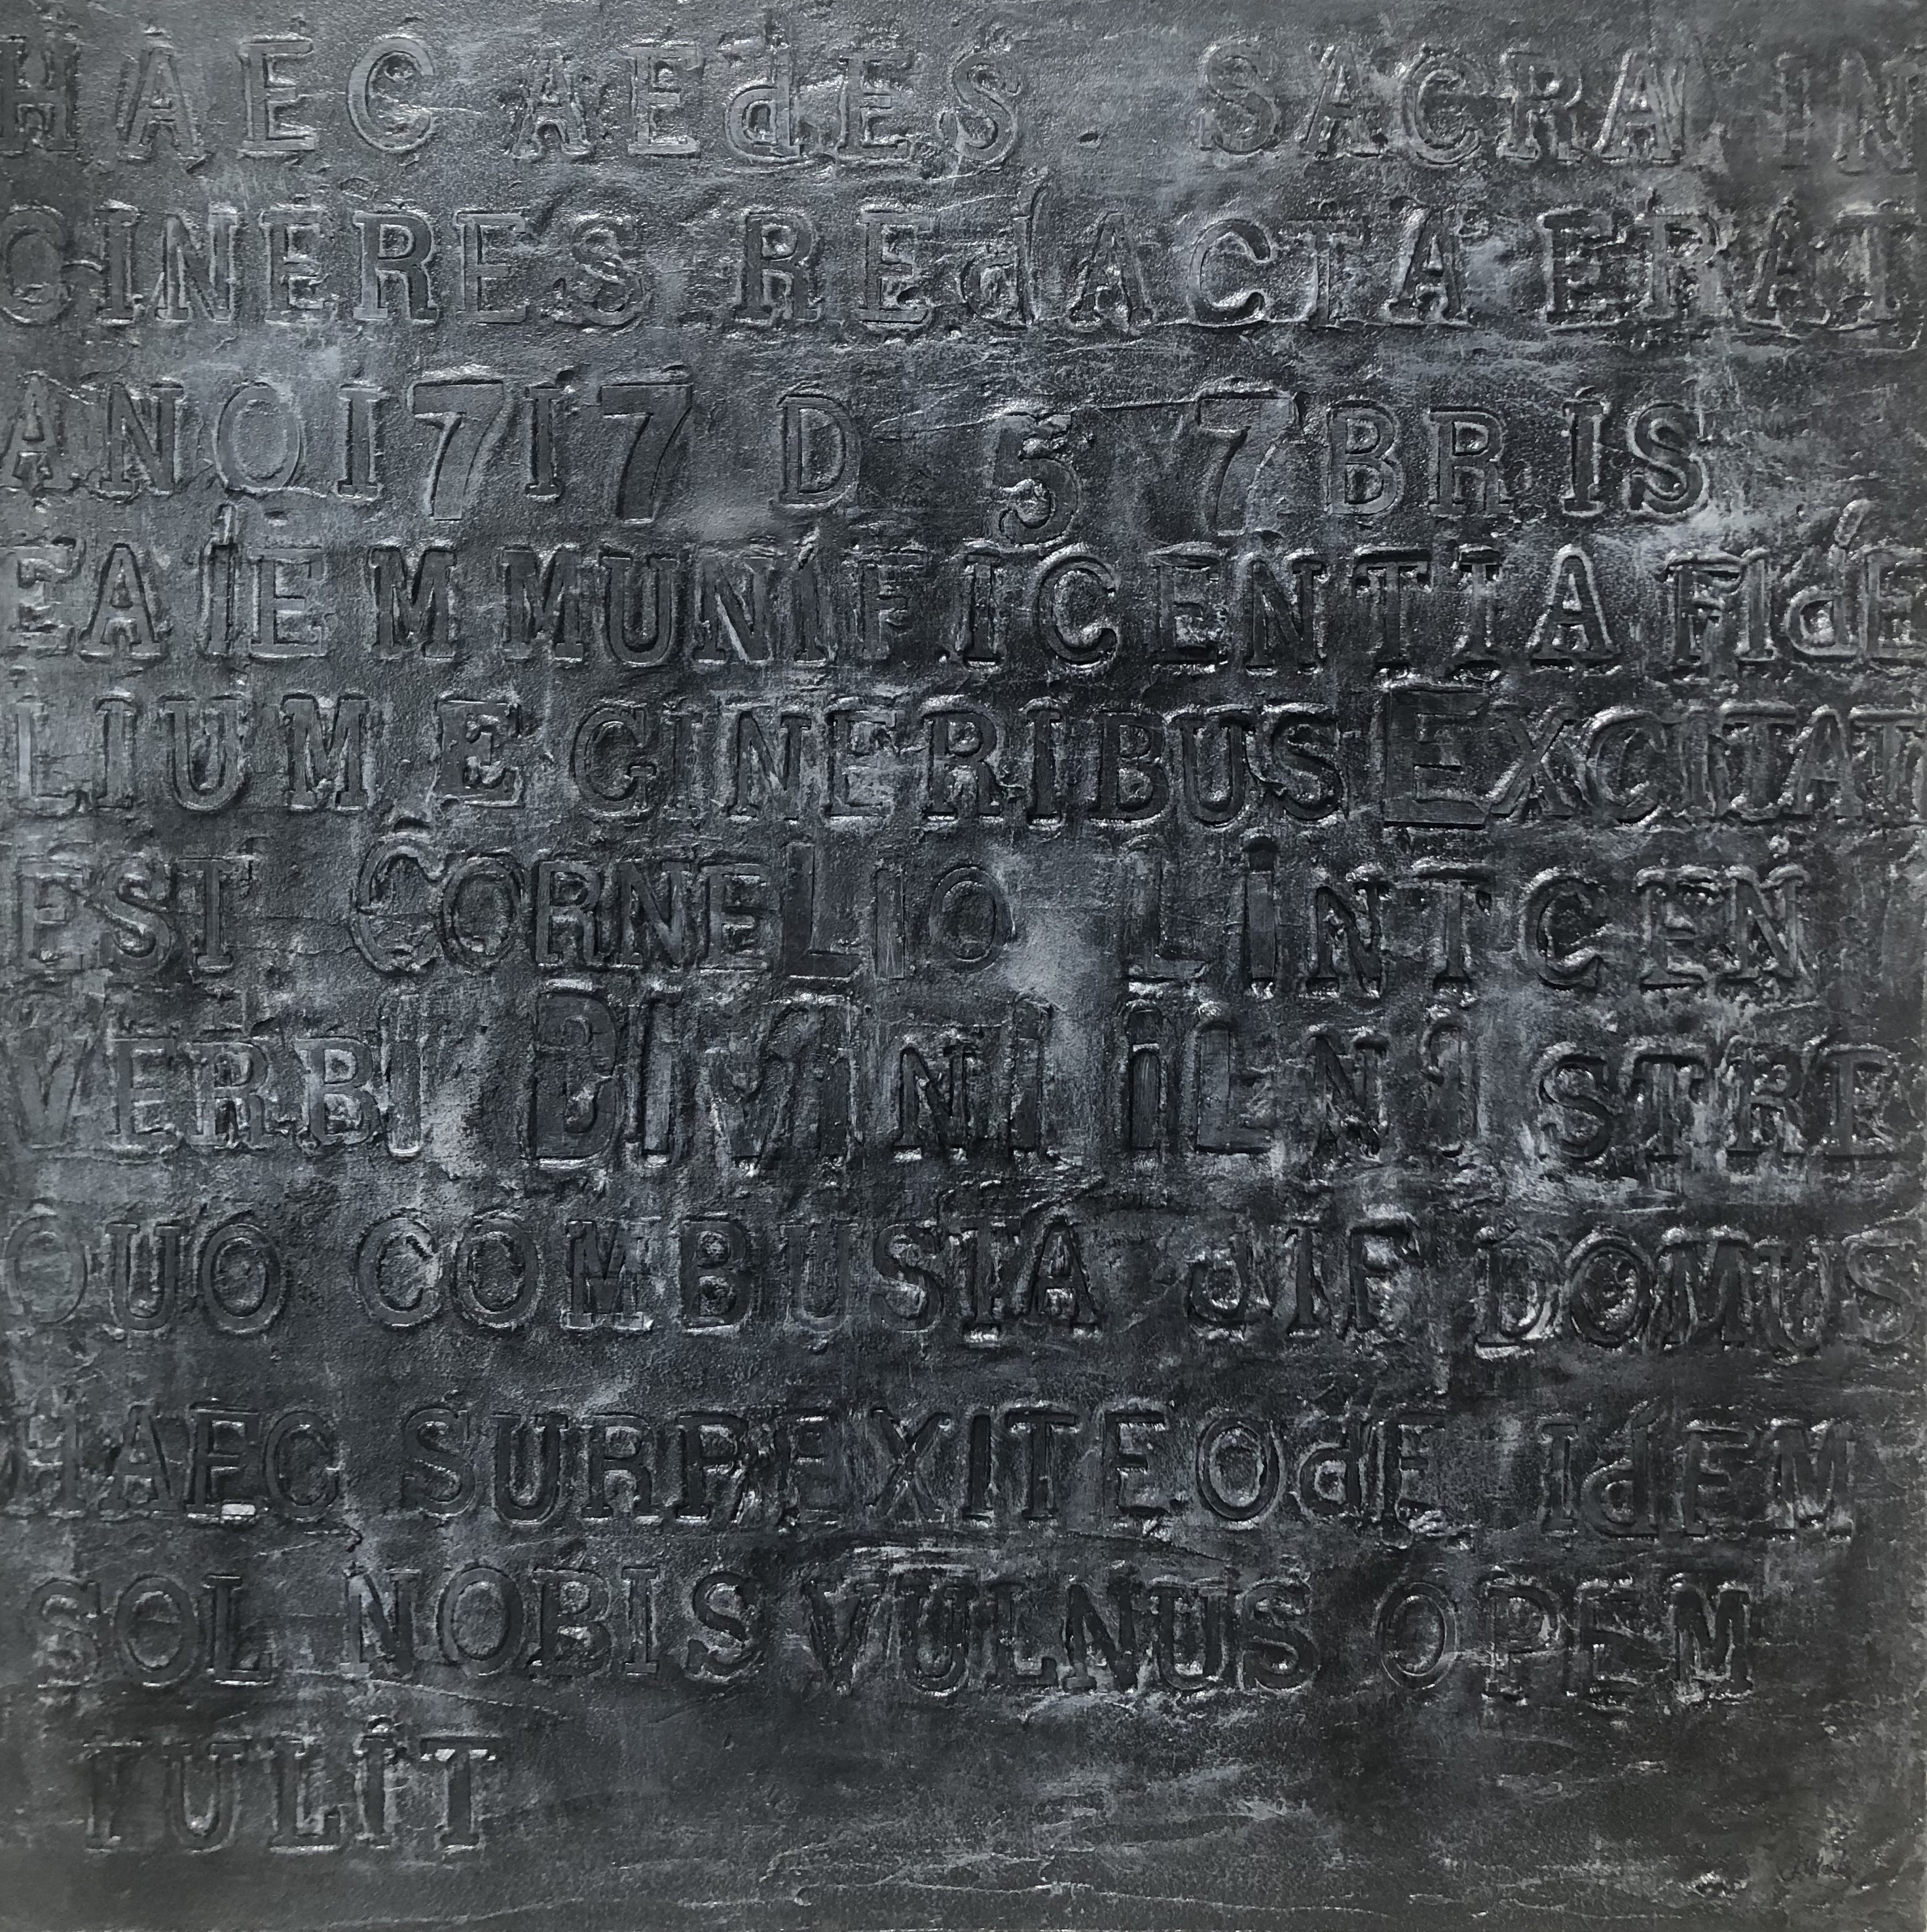 HAEC AEdES . SACRA IN
CINERES REdACTA ERAT
ANOI7I7 D 5 7BRIS
EAIEM MUNIFICENTIA FIdE
LIUM E CINERIBUS EXCITAT
EST CORNELIO LINTCEN
VERBI DIVINI STRE
QUO COMBUSTA dIE DOMUS
HAEC SURREXITEOdE IdEM
SOL NOBIS VULNUS OPEM
TULIT